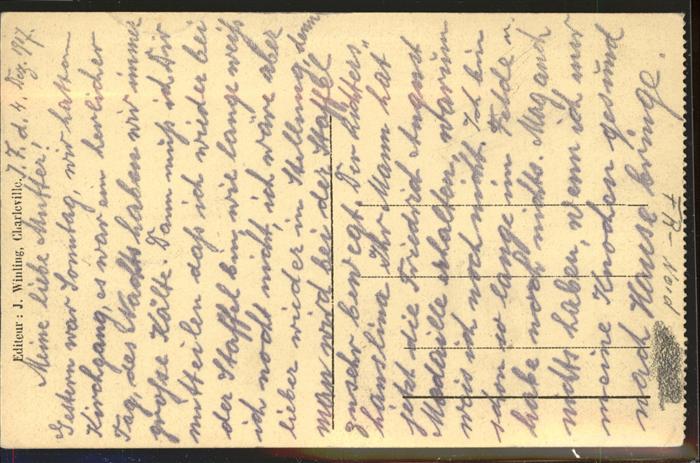 Editeur : J. Winling, Charleville.
I. F. d. 4. Dez. 1917.
Meine liebe Mutter!
Gestern war Sonntag, wir hatten
Kirchgang, es war ein herlicher
Tag, des Nachts haben wir immer
große Kälte. Dann muß ich Dir
mitteilen daß ich wieder bei
der Staffel bin, wie lange weiß
ich noch nicht, ich wäre aber
lieber wieder in Stellung, denn
man wird bei der Staffel
zu sehr bewegt. Der
Ihr Mann hat
jetzt die Friedrich August
Medaille erhalten, warum
weis ich noch nicht. Ich bin
schon so lange im Felde u.
habe noch nichts. Mag auch
nichts haben, wenn ich nur
meine Knochen gesund
nach Hause bringe.